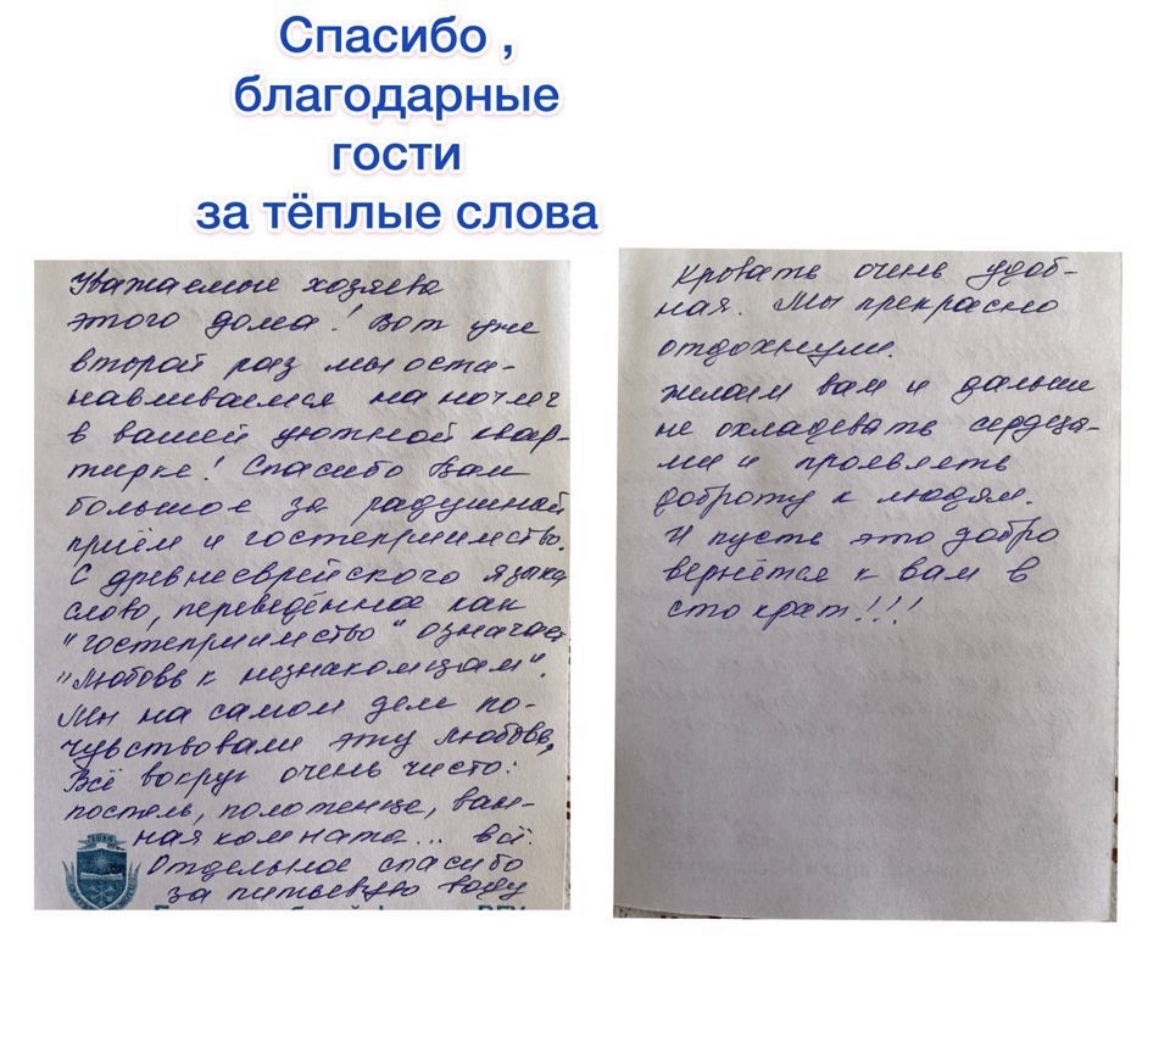 Спасибо ,
благодарные
гости
за тёплые слова
Уважаемые хозяева
этого дома! Вот уже
второй раз мы оста-
навливаемся на ночлег
в вашей уютной квар-
тирке! Спасибо Вам
большое за радушный
приём и гостеприимство.
С древнееврейского языка
слово, переведённое как
"гостеприимство" означает
"любовь к незнакомцам".
Мы на самом деле по-
чувствовали эту любовь,
Всё вокруг очень чисто:
постель, полотенце, ван-
ная комната... всё.
Отдельное спасибо
за питьевую воду
кровать очень удоб-
ная. Мы прекрасно
отдохнули.
желаем вам и дальше
не охладевать сердца-
ми и проявлять
доброту к людям.
И пусть это добро
вернётся к вам в
сто крат!!!